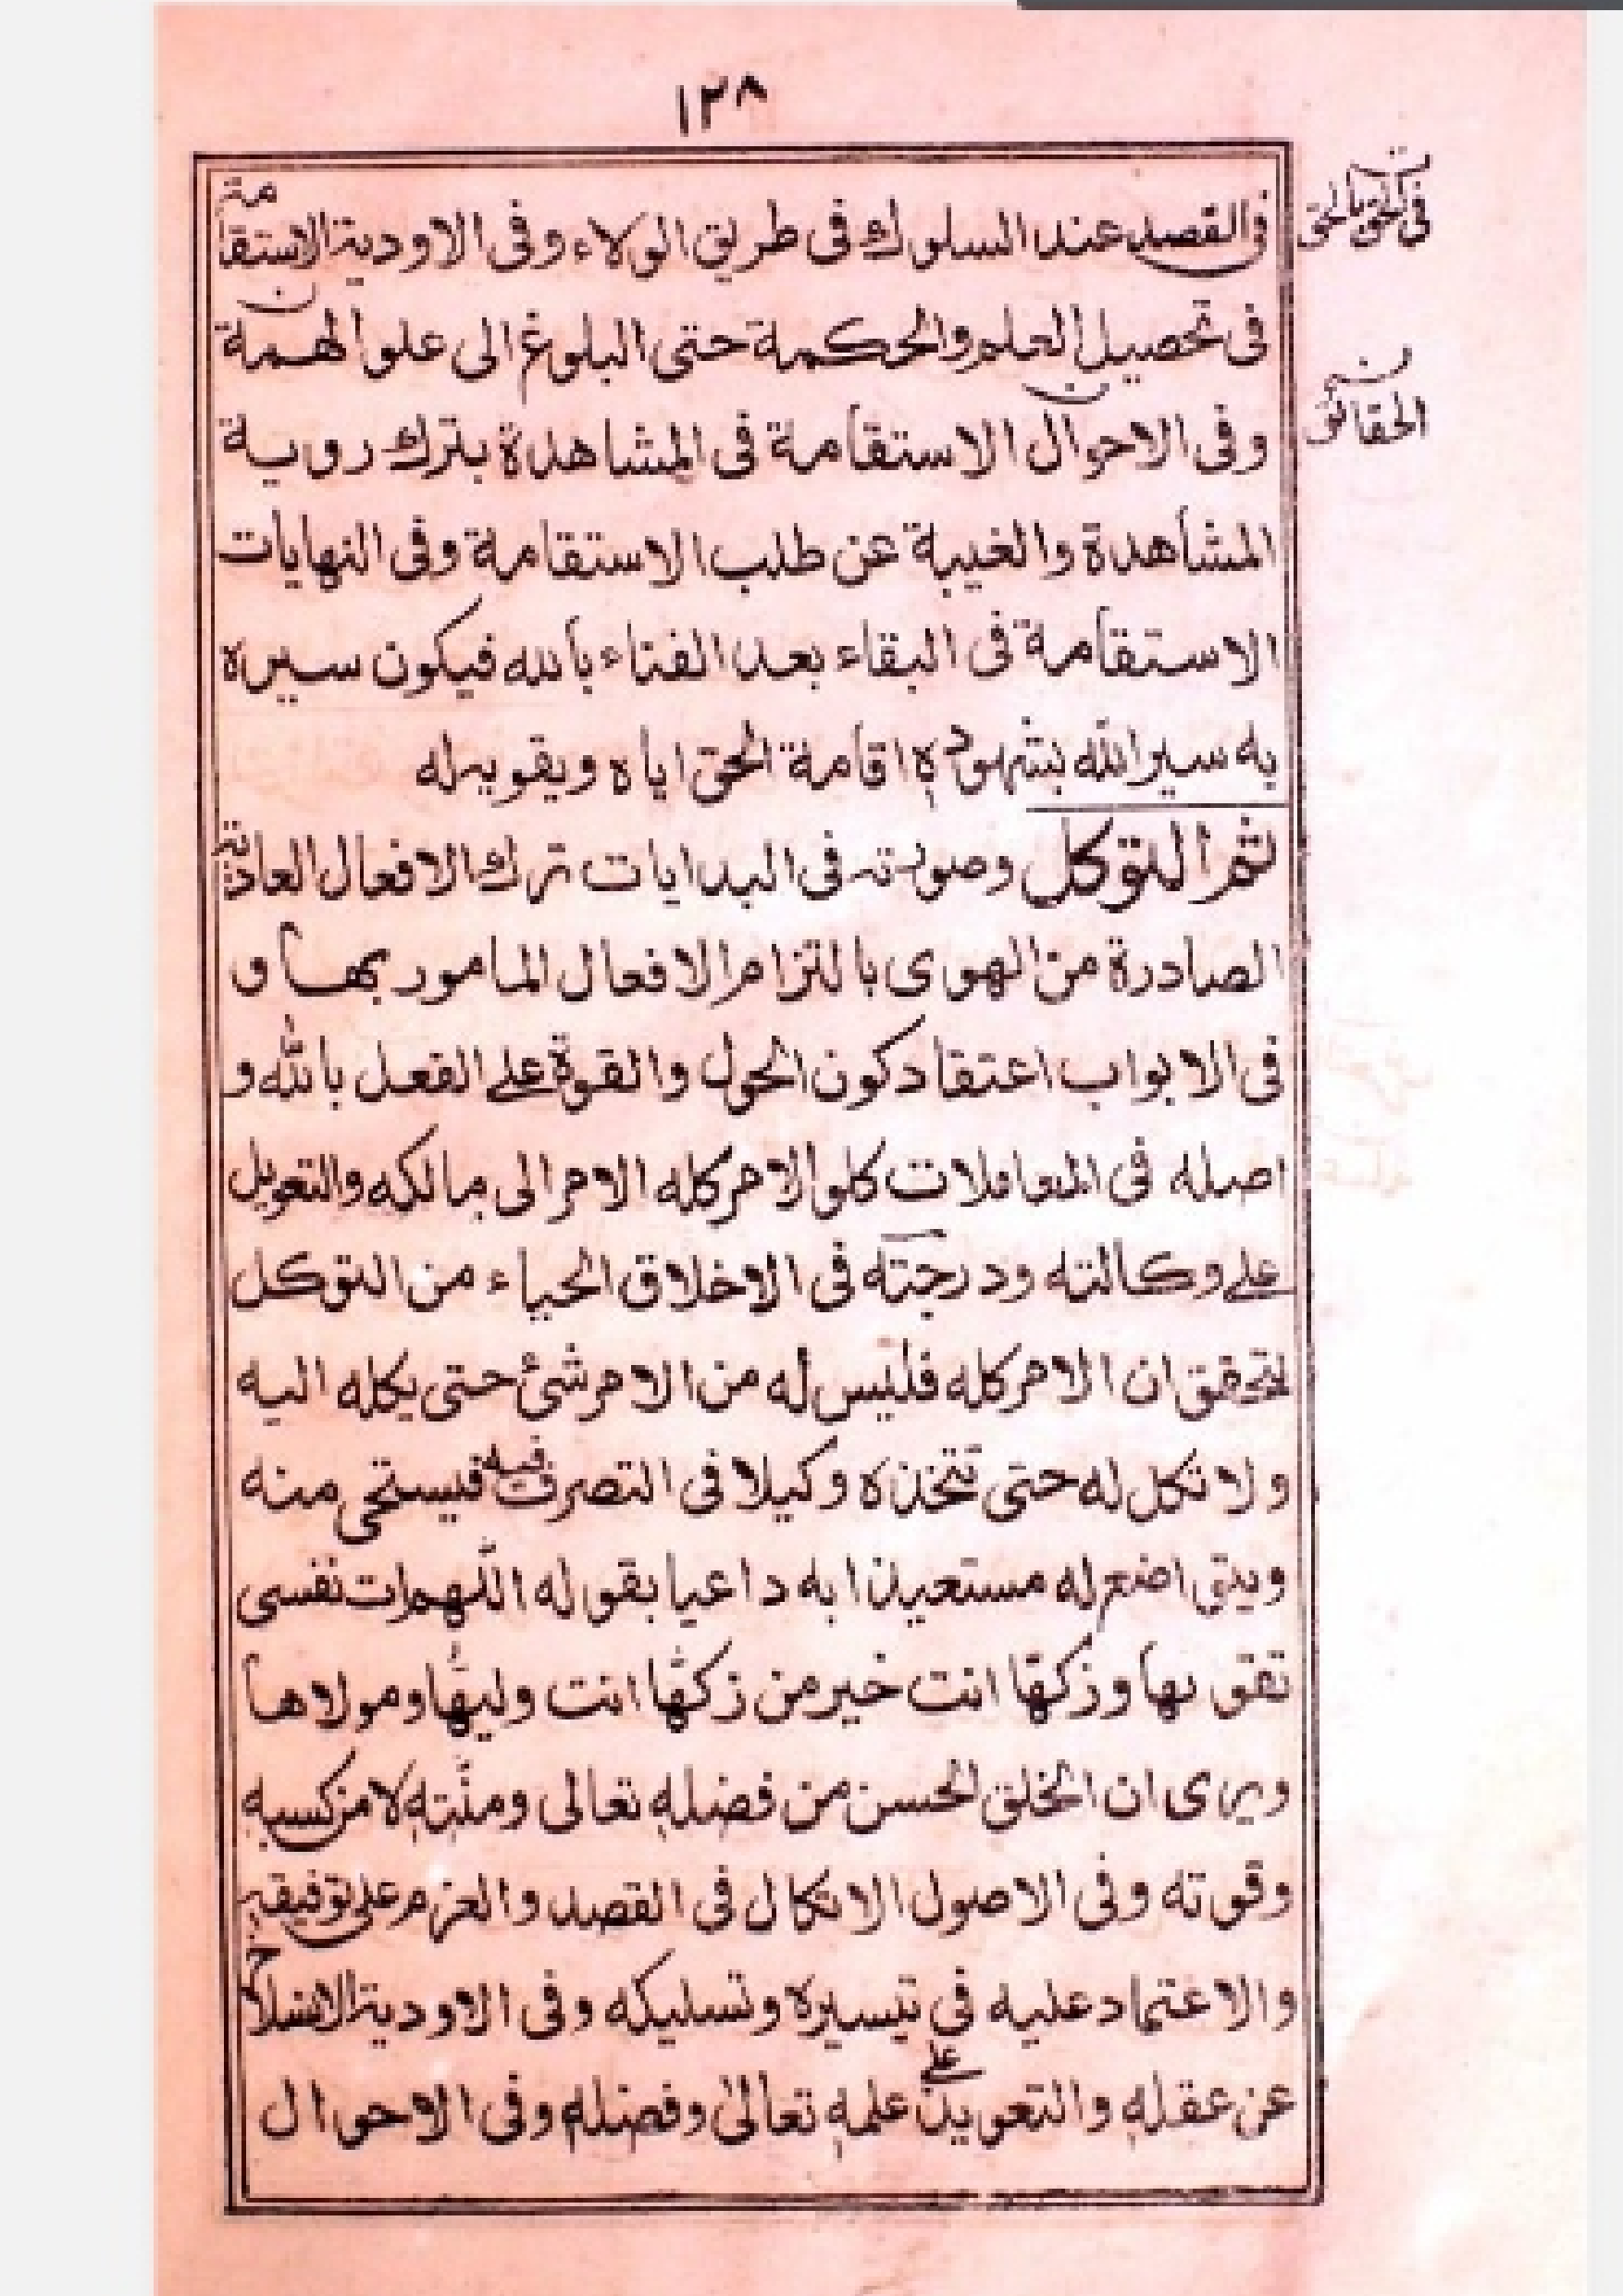 ١٢٨
فى القصد عند السلوك فى طريق الولاء وفى الاودية الاستقامة
فى تحصيل العلم والحكمة حتى البلوغ الى علو الهمة
الحقائق
وفى الاحوال الاستقامة فى المشاهدة بترك روية
المشاهدة والغيبة عن طلب الاستقامة وفى النهايات
الاستقامة فى البقاء بعد الفناء بالله فيكون سيره
به سير الله بشهوده اقامة الحق اياه ويقويه له
ثم التوكل وصورته فى البدايات ترك الافعال العادية
الصادرة من الهوى بالتزام الافعال المامور بها و
فى الابواب اعتقاد كون الحول والقوة على الفعل بالله و
اصله فى المعاملات كلو الامر كله الامر الى مالكه والتعويل
على وكالته ودرجته فى الاخلاق الحياء من التوكل
لتحقق ان الامر كله فليس له من الامر شئ حتى يكله اليه
ولا تكل له حتى تتخذه وكيلا فى التصرف فيه فيستحى منه
اضع له مستعينا به داعيا بقوله اللهم ات نفسى
تقوىها وزكها انت خير من زكها انت وليها ومولاها
ويرى ان الخلق الحسن من فضله تعالى ومنته لا من كسبه
وقوته وفى الاصول الاتكال فى القصد والعزم على توفيقه
والاعتماد عليه فى تيسيره وتسليكه وفى الاودية الانسلاخ
عن عقله والتعويل على علمه تعالى وفضله وفى الاحوال